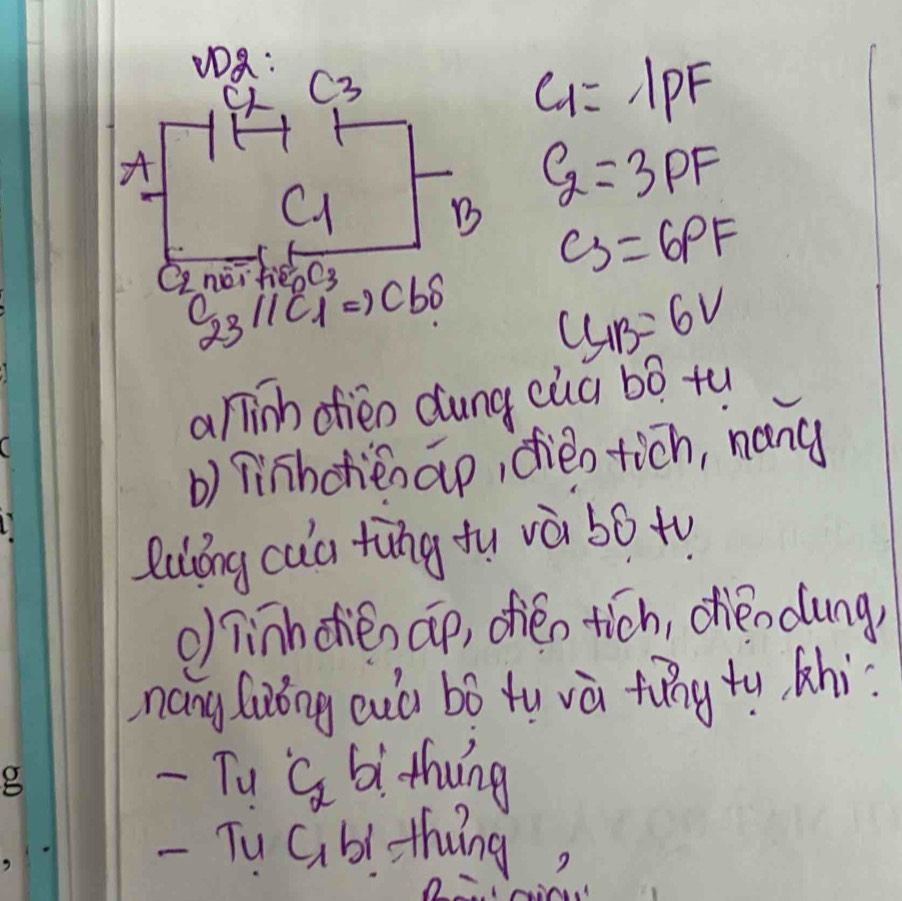 VD2:
C2 C3
A
C1
B
C2 nối tiếp C3
C23 // C1 => Cbộ
C1 = 1pF
C2 = 3PF
C3 = 6PF
UAB = 6V
a/ Tính điện dung của bộ tụ
b) Tính điện áp, điện tích, năng
lượng của từng tụ và bộ tụ
c) Tính điện áp, điện tích, điện dung,
năng lượng của bộ tụ và từng tụ khi:
- Tụ C2 bị thủng
- Tụ C1 bị thủng
g
,